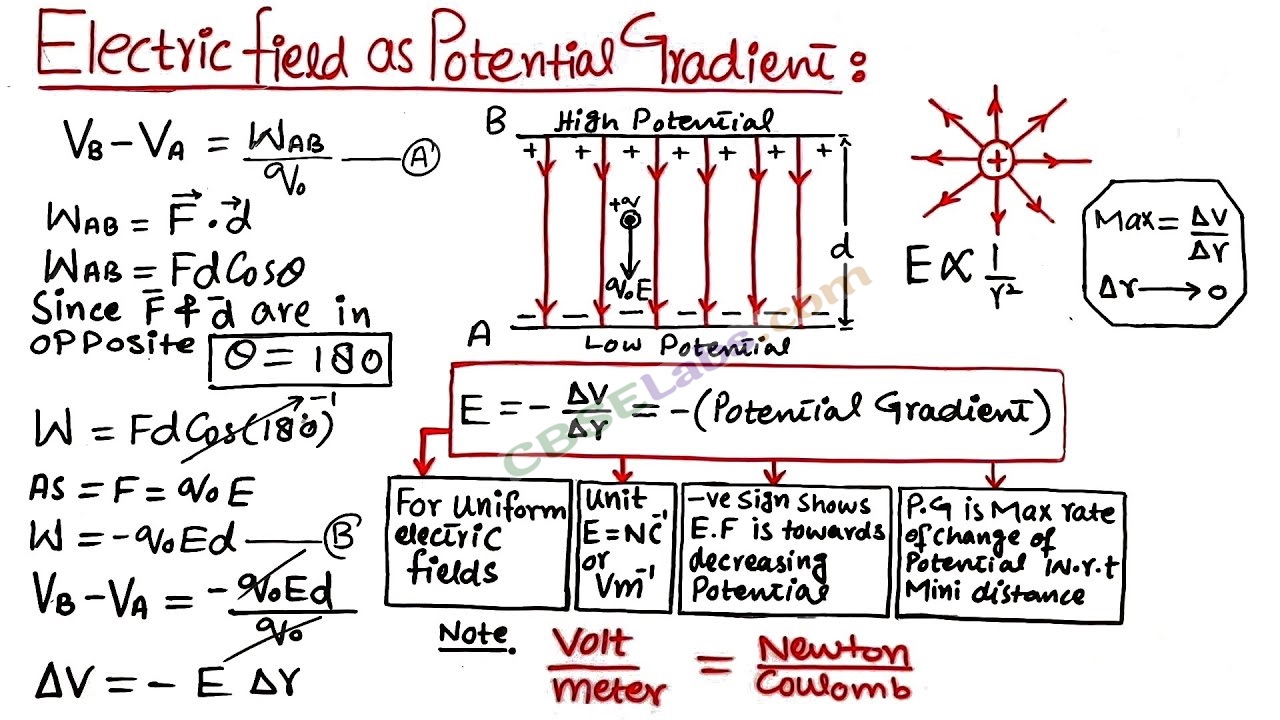 Electric field as Potential Gradient:
V_B − V_A = W_AB / q₀ —— (A')
W_AB = F⃗ · d⃗
W_AB = Fd Cosθ
Since F̄ & d̄ are in
opposite θ = 180
W = Fd Cos(180°) -1
As = F = q₀E
W = −q₀Ed —— (B')
V_B − V_A = −q₀Ed / q₀
ΔV = − E Δr
B High Potential
+ + + + + + +
+q
q₀E
d
− − − − − − −
A Low Potential
+
E ∝ 1/r²
Max = ΔV/Δr
Δr → 0
E = − ΔV/Δr = −(Potential Gradient)
For Uniform
electric
fields
Unit
E = NC⁻¹
or
Vm⁻¹
−ve sign shows
E.F is towards
decreasing
Potential
P.G is Max rate
of change of
Potential W.r.t
Mini distance
Note. Volt/meter = Newton/Coulomb
CBSELabs.com